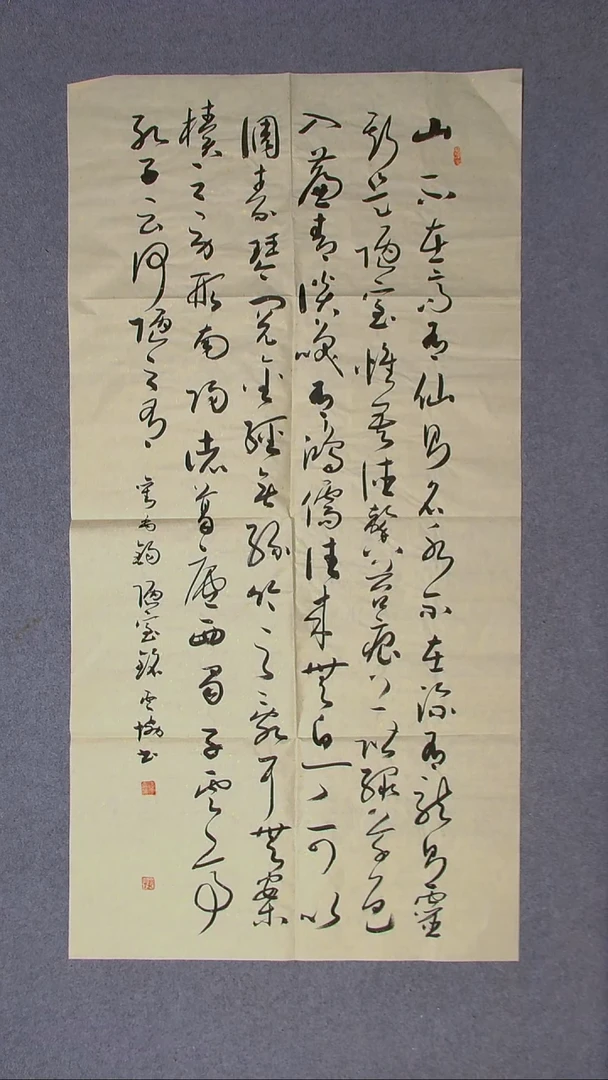 山不在高有仙則名水不在深有龍則靈
斯是陋室惟吾德馨苔痕上階綠草色
入簾青談笑有鴻儒往來無白丁可以
調素琴閱金經無絲竹之亂耳無案
牘之勞形南陽諸葛廬西蜀子雲亭
孔子云何陋之有 禹錫陋室銘 書